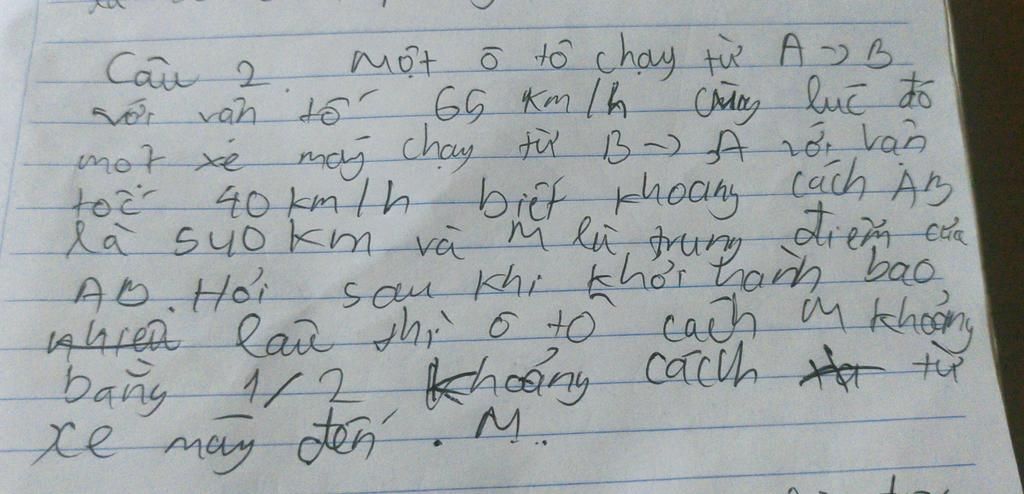 Câu 2. Một ô tô chạy từ A → B
với vận tố 65 km/h cùng lúc đó
một xe máy chạy từ B → A với vận
tốc 40 km/h biết khoang cách AB
là 540 km và M là trung điểm của
AB. Hỏi sau khi khởi hành bao
nhiêu lâu thì ô tô cách M khoảng
bằng 1/2 khoảng cách từ
xe máy đến . M.